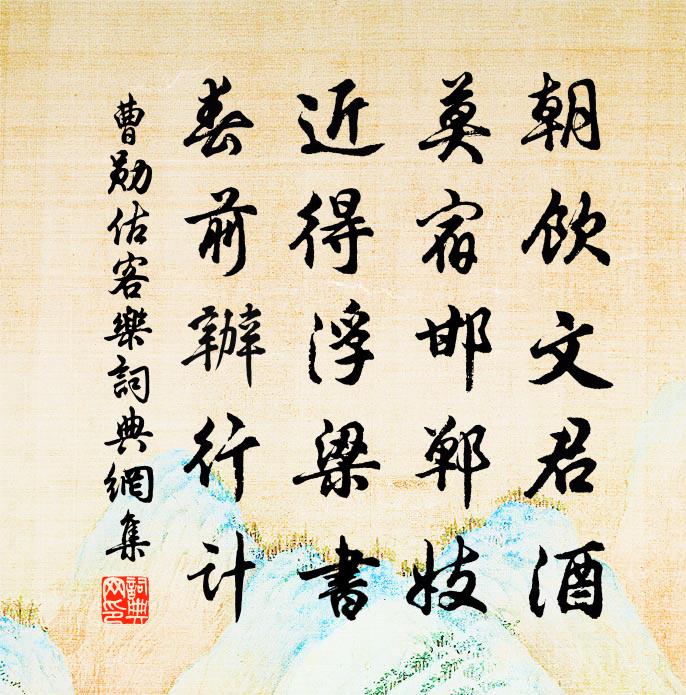 朝飲文君酒
莫宿邯鄲妓
近得浮梁書
春前辦行計
曹勛估客樂詞典網集
詞典網印